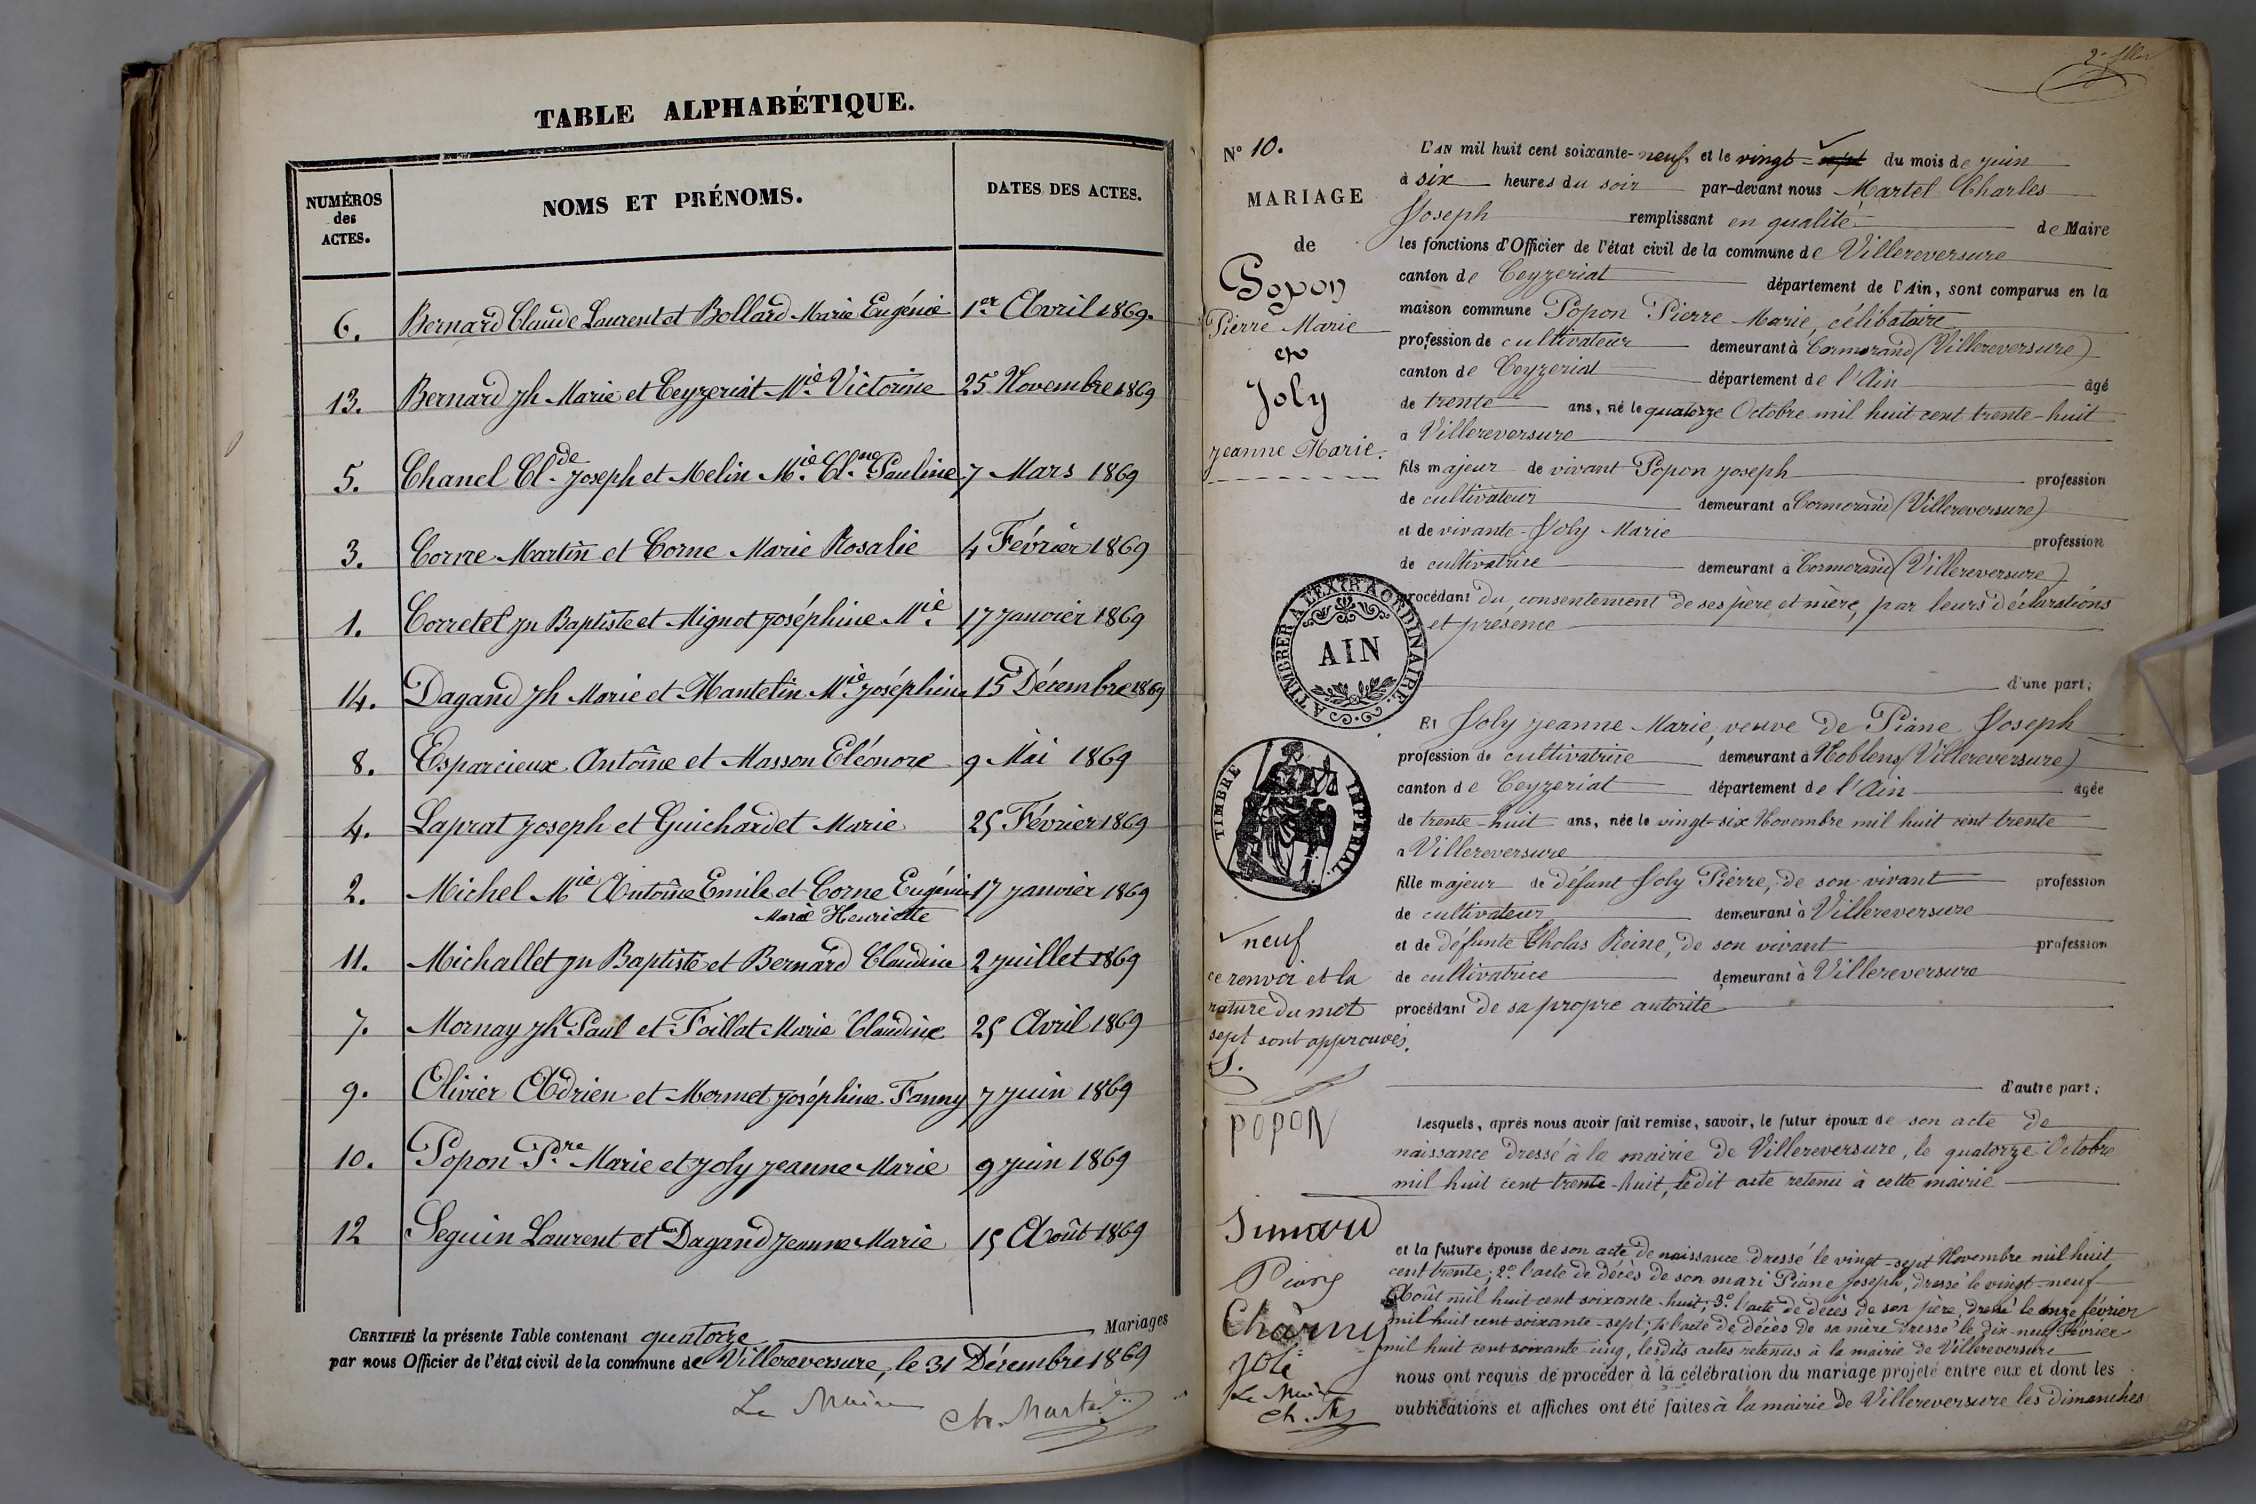 TABLE ALPHABÉTIQUE.
NUMÉROS des ACTES.
NOMS ET PRÉNOMS.
DATES DES ACTES.
6. Bernard Claude Laurent et Bollard Marie Eugénie 1er Avril 1869.
13. Bernard Jh Marie et Ceyzeriat Mie Victorine 25 Novembre 1869
5. Chanel Clde Joseph et Melin Mie Clne Pauline 7 Mars 1869
3. Corne Martin et Corne Marie Rosalie 4 Février 1869
1. Corretel Jn Baptiste et Mignot Joséphine Mie 17 Janvier 1869
14. Dagand Jh Marie et Mantelin Mie Joséphine 15 Décembre 1869
8. Esparcieux Antoine et Masson Eléonore 9 Mai 1869
4. Laprat Joseph et Guichardet Marie 25 Février 1869
2. Michel Mie Antoine Emile et Corne Eugénie 17 Janvier 1869
Marie Henriette
11. Michallet Jn Baptiste et Bernard Claudine 2 Juillet 1869
7. Mornay Jh Paul et Foillat Marie Claudine 25 Avril 1869
9. Olivier Adrien et Mermet Joséphine Fanny 7 Juin 1869
10. Popon Pre Marie et Joly Jeanne Marie 9 Juin 1869
12 Seguin Laurent et Dagand Jeanne Marie 15 Août 1869
CERTIFIÉ la présente Table contenant quatorze Mariages
par nous Officier de l'état civil de la commune de Villereversure, le 31 Décembre 1869
Le Maire
Ch. Martel
N° 10.
MARIAGE
de
Popon
Pierre Marie
et
Joly
Jeanne Marie.
A TIMBRER A L'EXTRAORDINAIRE.
AIN
TIMBRE IMPÉRIAL.
neuf
ce renvoi et la
rature du mot
sept sont approuvés.
POPON
Piany
Charny
Joli
Le Maire
Ch. M
L'AN mil huit cent soixante-neuf et le vingt-sept du mois de Juin
à six heures du soir par-devant nous Martel Charles
Joseph remplissant en qualité de Maire
les fonctions d'Officier de l'état civil de la commune de Villereversure
canton de Ceyzeriat département de l'Ain, sont comparus en la
maison commune Popon Pierre Marie, célibataire
profession de cultivateur demeurant à Cormorand (Villereversure)
canton de Ceyzeriat département de l'Ain âgé
de trente ans, né le quatorze Octobre mil huit cent trente-huit
à Villereversure
fils majeur de vivant Popon Joseph profession
de cultivateur demeurant à Cormorand (Villereversure)
et de vivante Joly Marie profession
de cultivatrice demeurant à Cormorand (Villereversure)
procédant du consentement de ses père et mère, par leurs déclarations
et présence
d'une part;
Et Joly Jeanne Marie, veuve de Piane Joseph
profession de cultivatrice demeurant à Noblens (Villereversure)
canton de Ceyzeriat département de l'Ain âgée
de trente-huit ans, née le vingt-six Novembre mil huit cent trente
à Villereversure
fille majeur de défunt Joly Pierre, de son vivant profession
de cultivateur demeurant à Villereversure
et de défunte Cholas Reine, de son vivant profession
de cultivatrice demeurant à Villereversure
procédant de sa propre autorité
d'autre part;
Lesquels, après nous avoir fait remise, savoir, le futur époux de son acte de
naissance dressé à la mairie de Villereversure, le quatorze Octobre
mil huit cent trente-huit, ledit acte retenu à cette mairie
et la future épouse de son acte de naissance dressé le vingt-sept Novembre mil huit
cent trente; 2° l'acte de décès de son mari Piane Joseph, dressé le vingt-neuf
Août mil huit cent soixante-huit; 3° l'acte de décès de son père, dressé le onze février
mil huit cent soixante-sept; 4° l'acte de décès de sa mère dressé le dix-neuf Février
mil huit cent soixante cinq, lesdits actes retenus à la mairie de Villereversure
nous ont requis de procéder à la célébration du mariage projeté entre eux et dont les
publications et affiches ont été faites à la mairie de Villereversure les dimanches